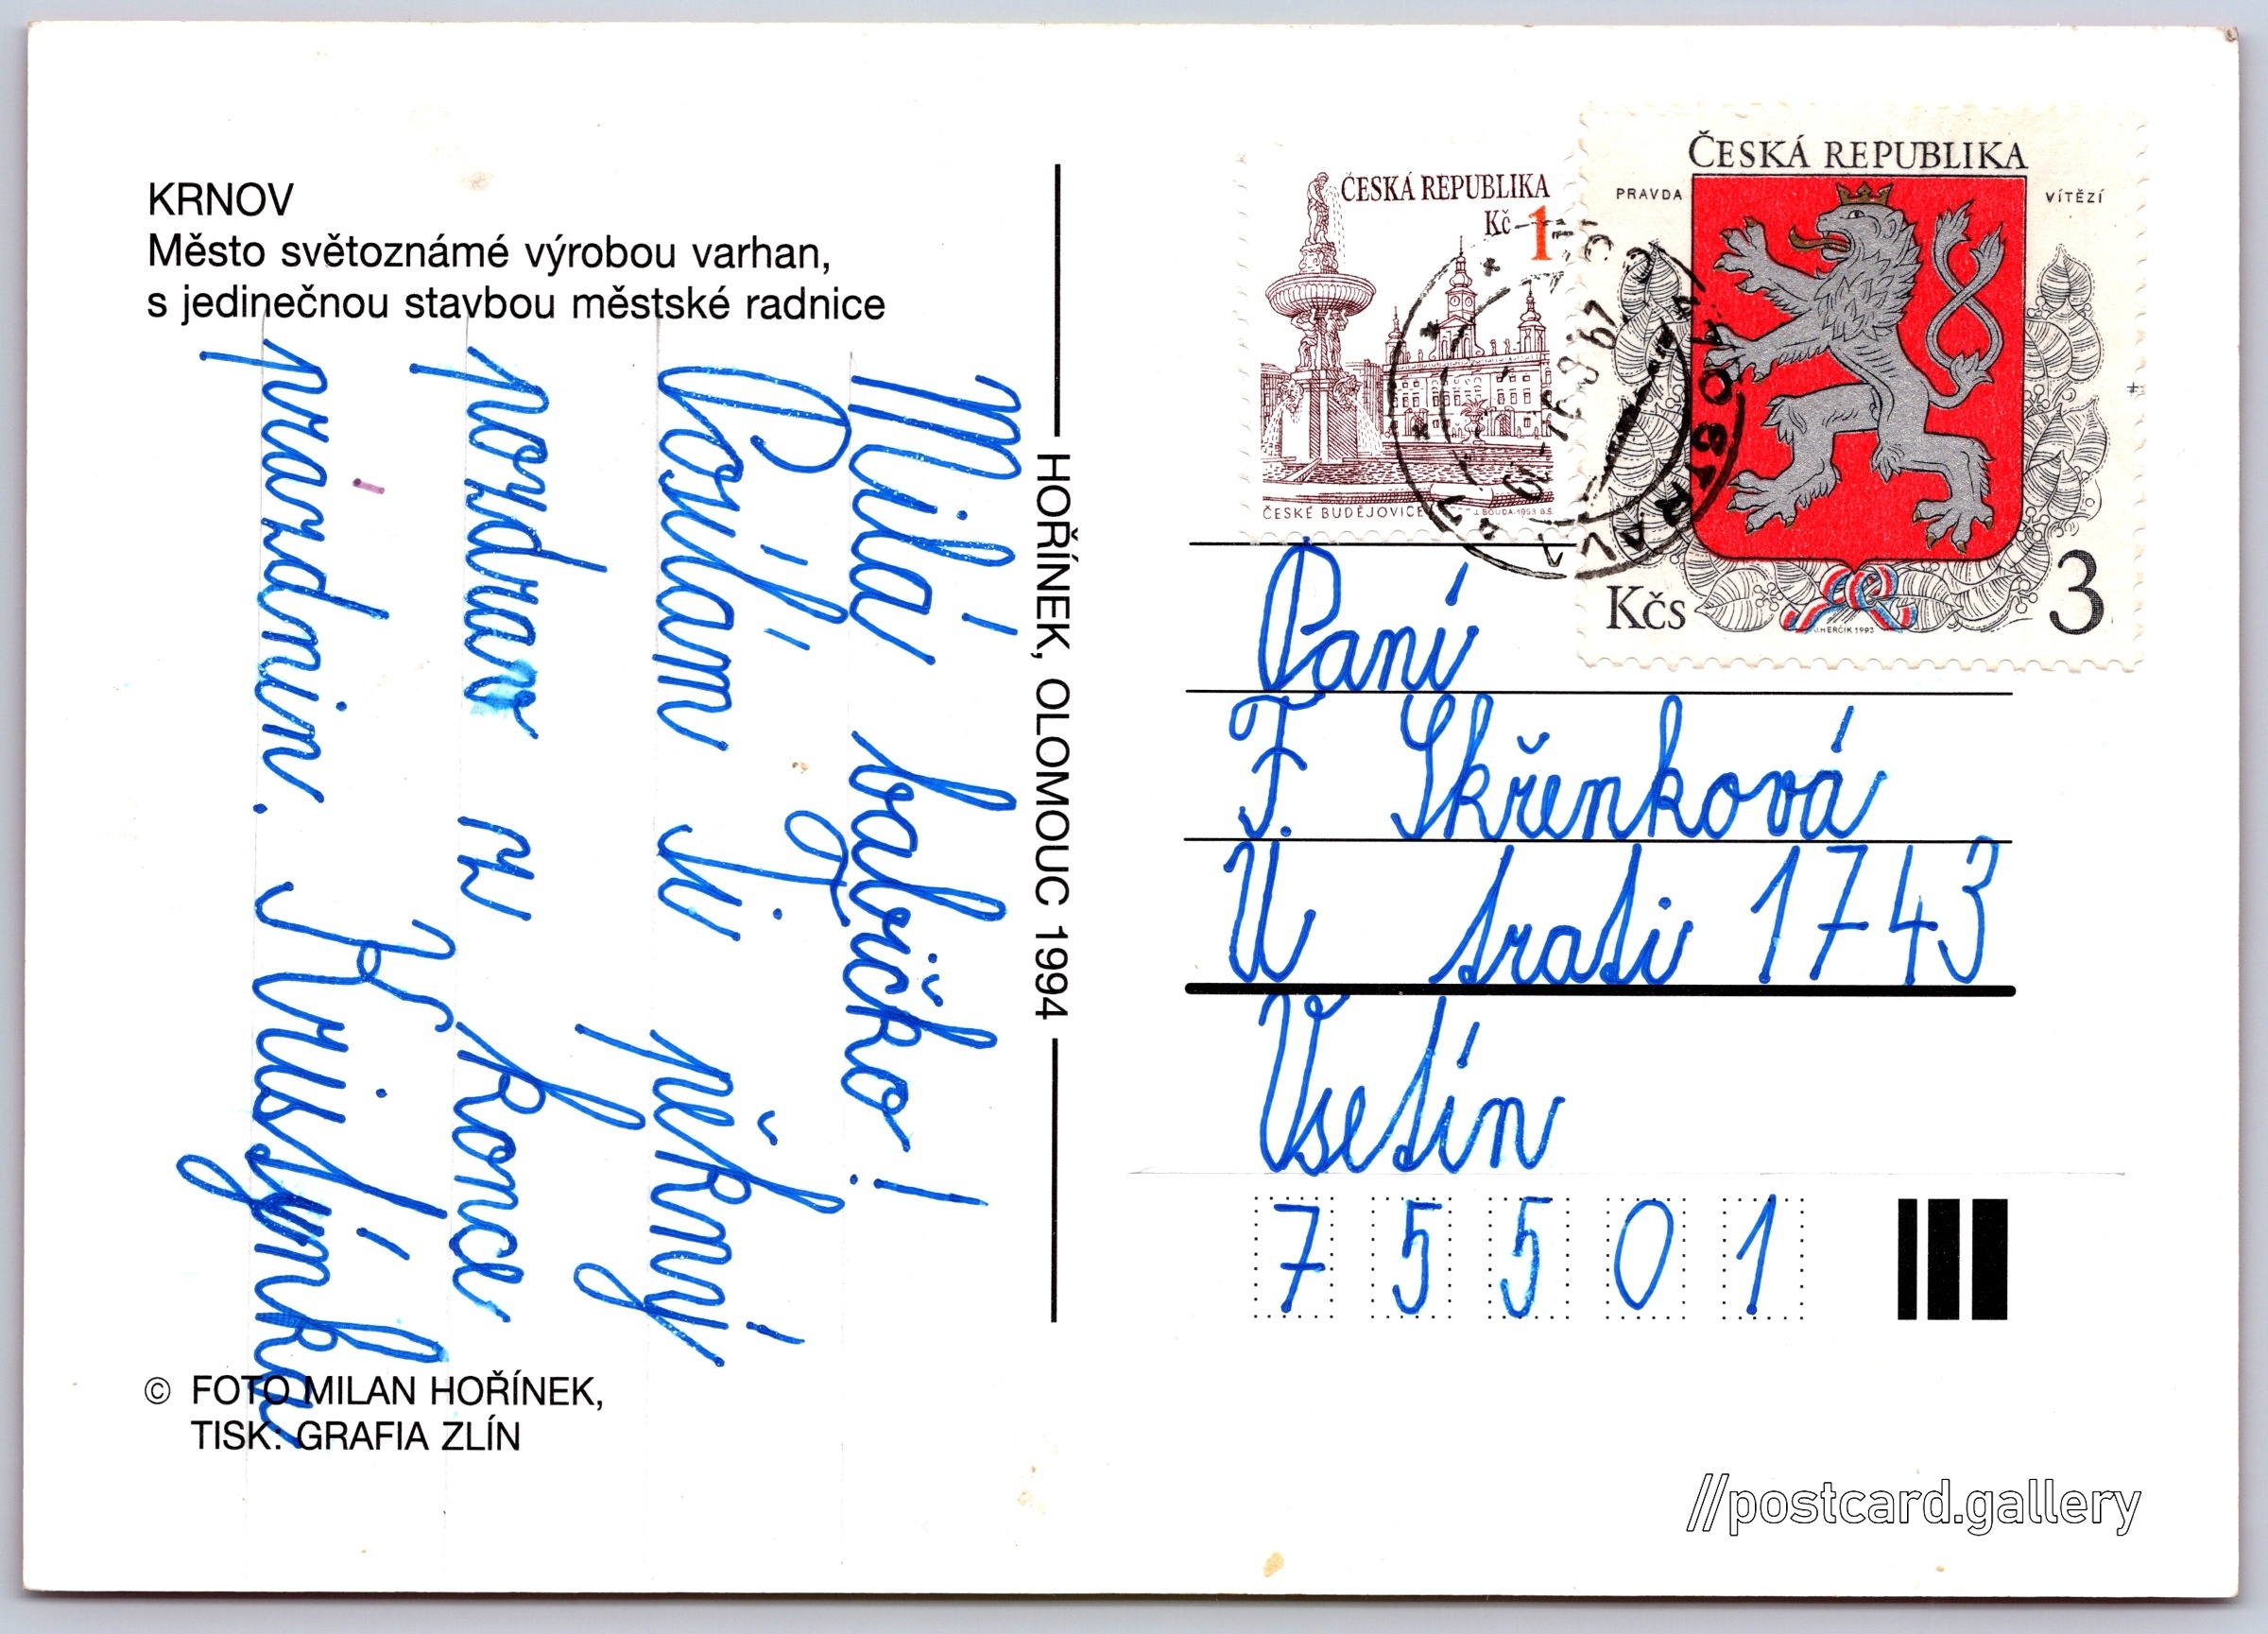 KRNOV
Město světoznámé výrobou varhan,
s jedinečnou stavbou městské radnice
Milá babičko!
Posílám Ti pěkný
pozdrav z konce
prázdnin. Kristýnka
© FOTO MILAN HOŘÍNEK,
TISK: GRAFIA ZLÍN
HOŘÍNEK, OLOMOUC 1994
ČESKÁ REPUBLIKA
Kč 1
ČESKÉ BUDĚJOVICE
J. BOUDA-1993 B.Š.
ČESKÁ REPUBLIKA
PRAVDA VÍTĚZÍ
Kčs 3
J. HERČÍK 1993
Paní
F. Skřenková
U trati 1743
Vsetín
75501
//postcard.gallery